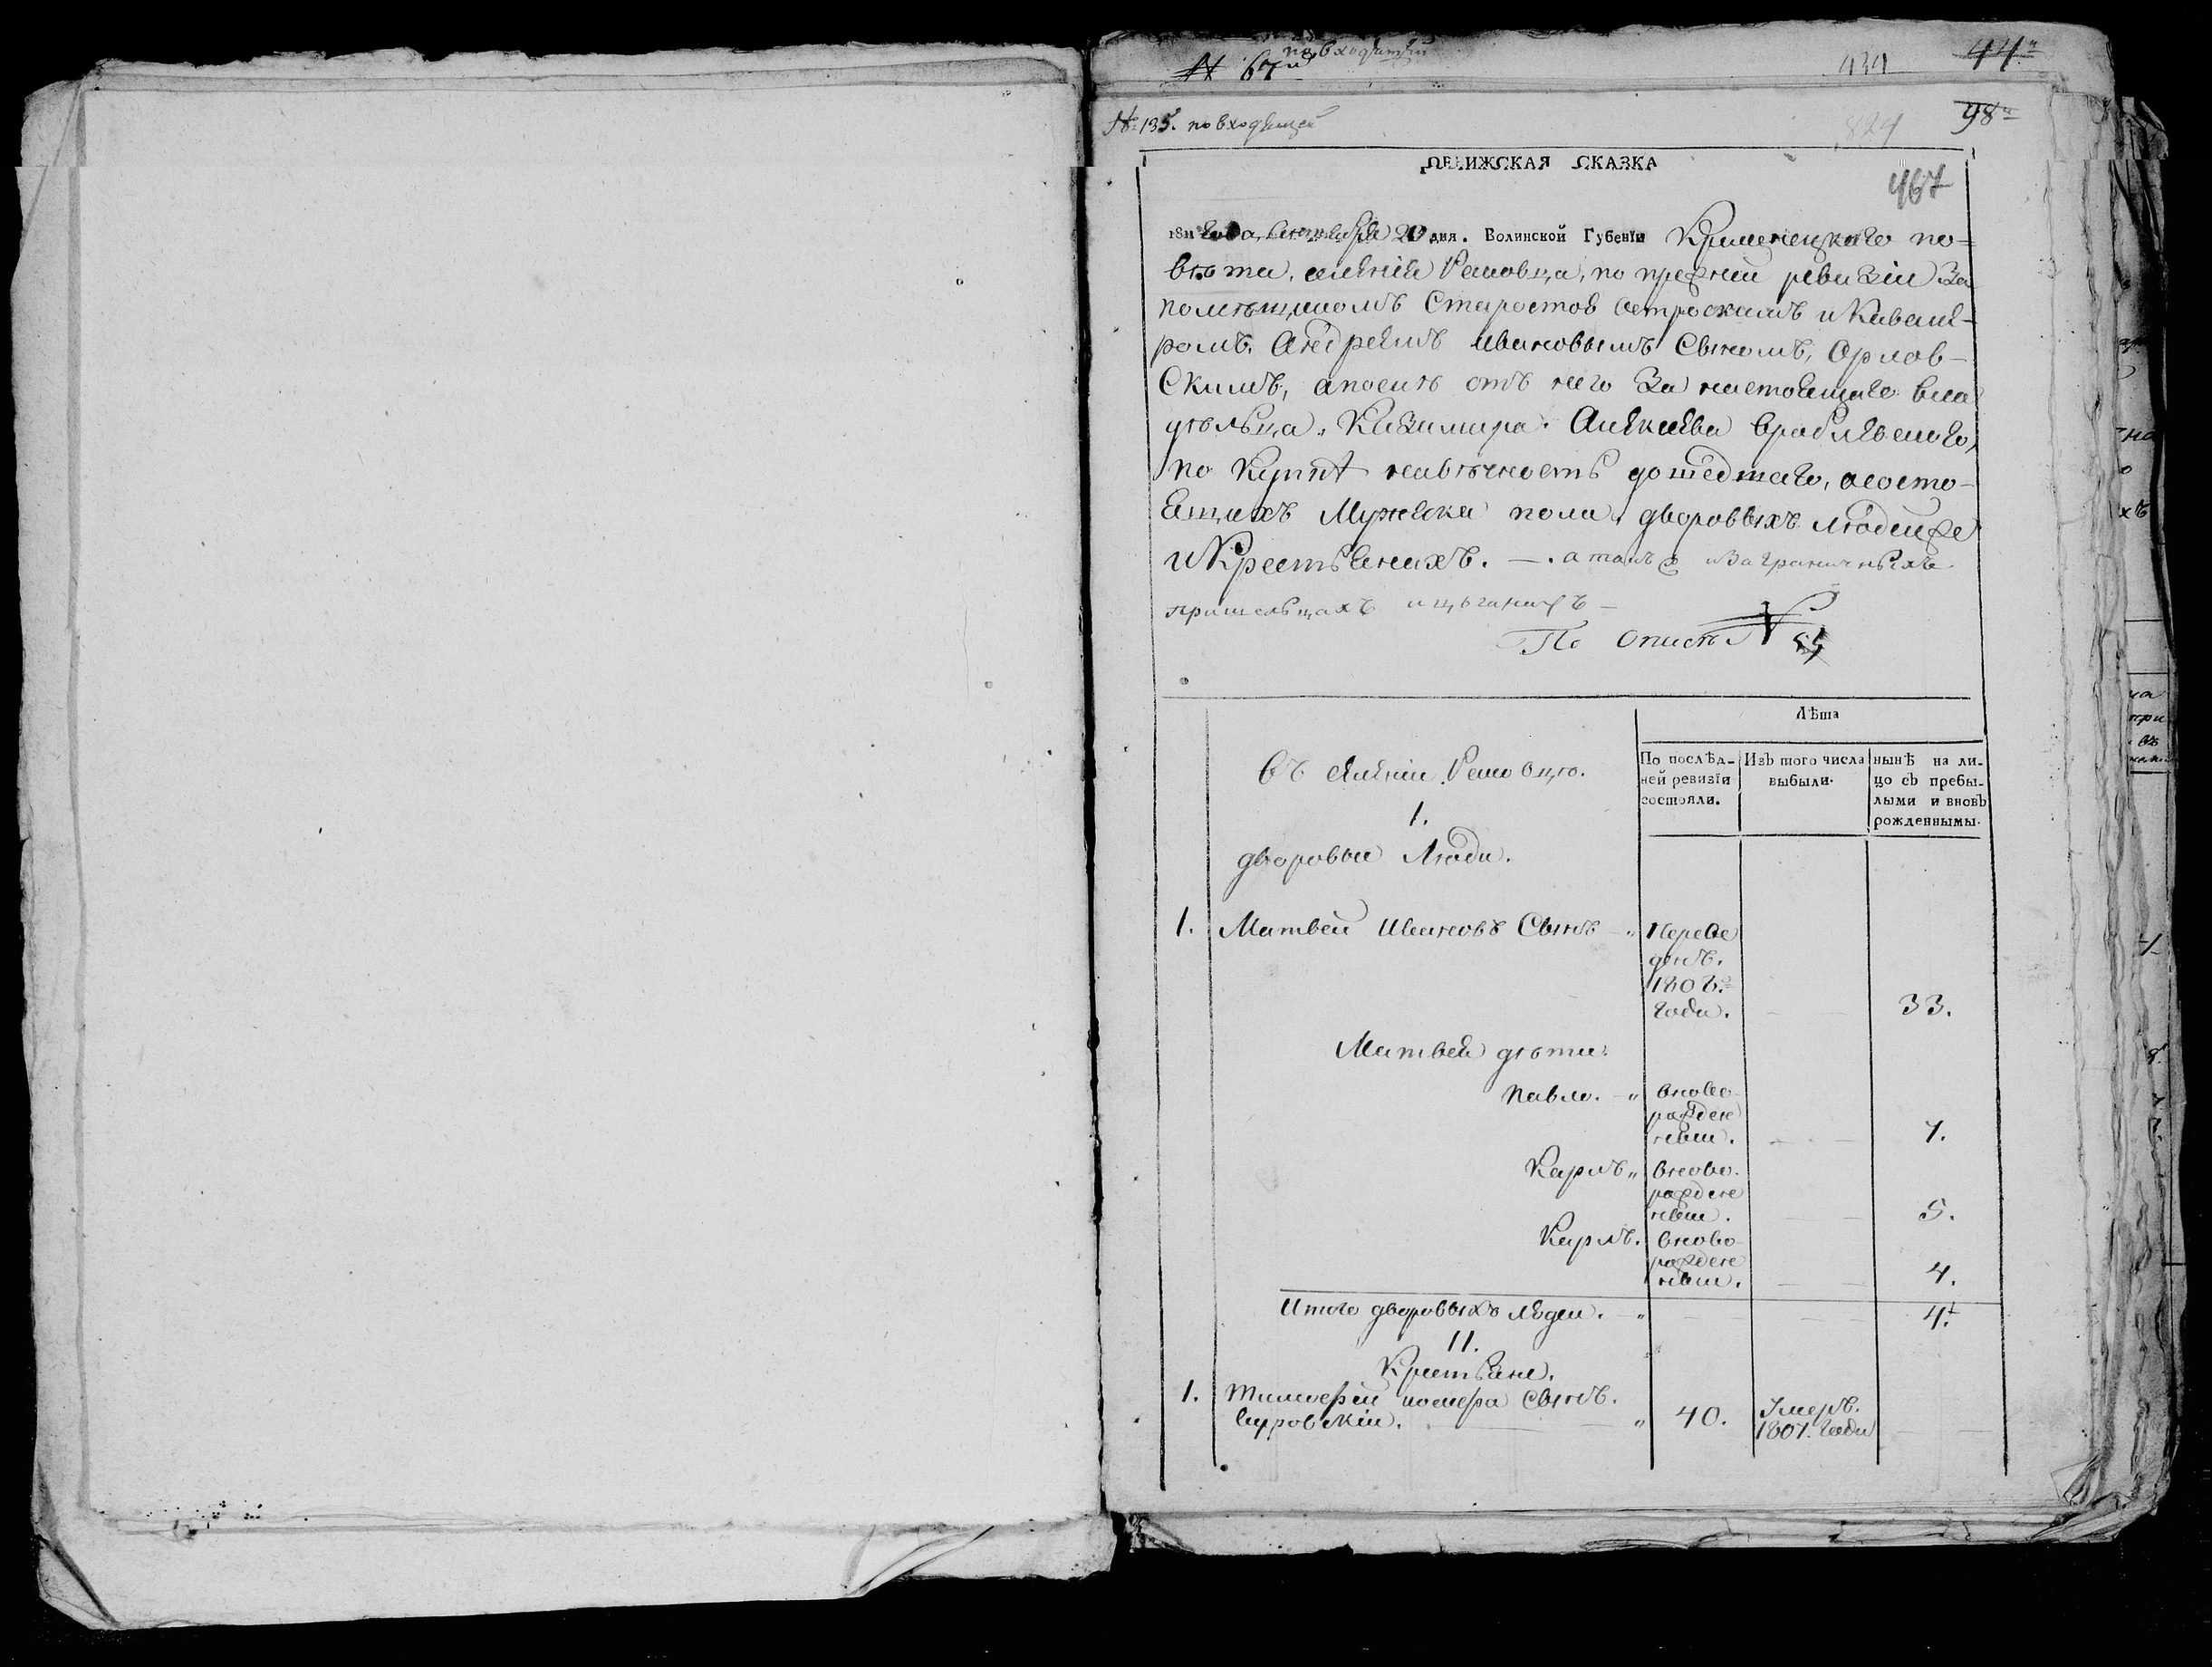 № 67й по входящей
434
44й
№ 135. по входящей
824
98й
РЕВИЖСКАЯ СКАЗКА
467
1811 Года, Сентября 20 дня. Волинской Губенїи Кременецкаго по=
вѣта, селенія Рашовца, по прежней ревизіи За
помѣщикомъ Старостов Остроскимъ и Кавале-
ромъ, Андреемъ Ивановымъ Сыномъ, Орлов-
Скимъ, а после отъ него За настоящаго вла
дѣльца, Казимира Алексѣева
по Купле на вѣчность дошедшаго, ососто-
ящихъ Мужеска пола, дворовыхъ людей
и Крестьянахъ. — . а также и Заграничныхъ
пришельцахъ и цыганахъ —
По описѣ №
Лѣта
Въ селеніи Рашовцѣ.
По послѣд-
ней ревизїи
состояли.
Изъ того числа
выбыли.
нынѣ на ли-
цо съ пребы-
лыми и вновь
рожденными.
1.
дворовые Люди.
1. Матвей Ивановъ Сынъ - „ Переве
денъ.
1808.го
Года. — — 33.
Матвея дѣти:
Павло. - „ вново-
рожден
ный. — — 7.
Карлъ „ вново-
рожден
ный. — — 5.
Карлъ. вново-
рожден
ный. — — 4.
Итого дворовыхъ людей. - „ — — — — 4.
11.
Крестьяне.
1. Тимофей Сынъ.
„ 40. Умеръ.
1807. Года — —